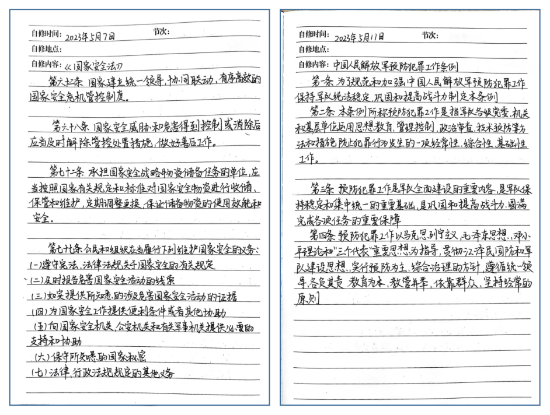 自修时间： 2023年5月7日 节次：
自修地点：
自修内容：《国家安全法》
第六十二条 国家建立统一领导，协同联动，有序高效的
国家安全危机管控制度。
第六十八条 国家安全威胁和危害得到控制或消除后
应当及时解除管控处置措施，做好善后工作。
承担国家安全战略物资储备任务的单位，应
当按照国家有关规定和标准对国家安全物资进行收储、
保管和维护，定期调整更换，保证储备物资的使用效能和
安全。
第七十七条 公民和组织应当履行下列维护国家安全的义务：
(一) 遵守宪法、法律法规关于国家安全的有关规定
(二) 及时报告危害国家安全活动的线索
(三) 如实提供所知悉的涉及危害国家安全活动的证据
(四) 为国家安全工作提供便利条件或者其他协助
(五) 向国家安全机关、公安机关和有关军事机关提供必要的
支持和协助
(六) 保守所知悉的国家秘密
(七) 法律、行政法规规定的其他义务
自修时间： 2023年5月11日 节次：
自修地点：
自修内容： 中国人民解放军预防犯罪工作条例
第一条 为了规范和加强中国人民解放军预防犯罪工作
保持军队纯洁稳定，巩固和提高战斗力制定本条例
第二条 本条例所称预防犯罪工作是指军队各级党委，机关
和基层单位运用思想教育，管理控制，政治审查，技术预防等方
法和措施防止犯罪行为发生的一项经常性，综合性，基础性
工作。
第三条 预防犯罪工作是军队全面建设的重要内容，是军队保
持稳定和集中统一的重要基础，是巩固和提高战斗力，圆满
完成各项任务的重要保障
第四条 预防犯罪工作以马克思列宁主义，毛泽东思想，邓小
平理论和“三个代表”重要思想为指导，贯彻江泽民国防和军
队建设思想，实行预防为主，综合治理的方针，遵循统一领
导，各负其责，教育为本，教管并举，依靠群众，坚持经常的
原则